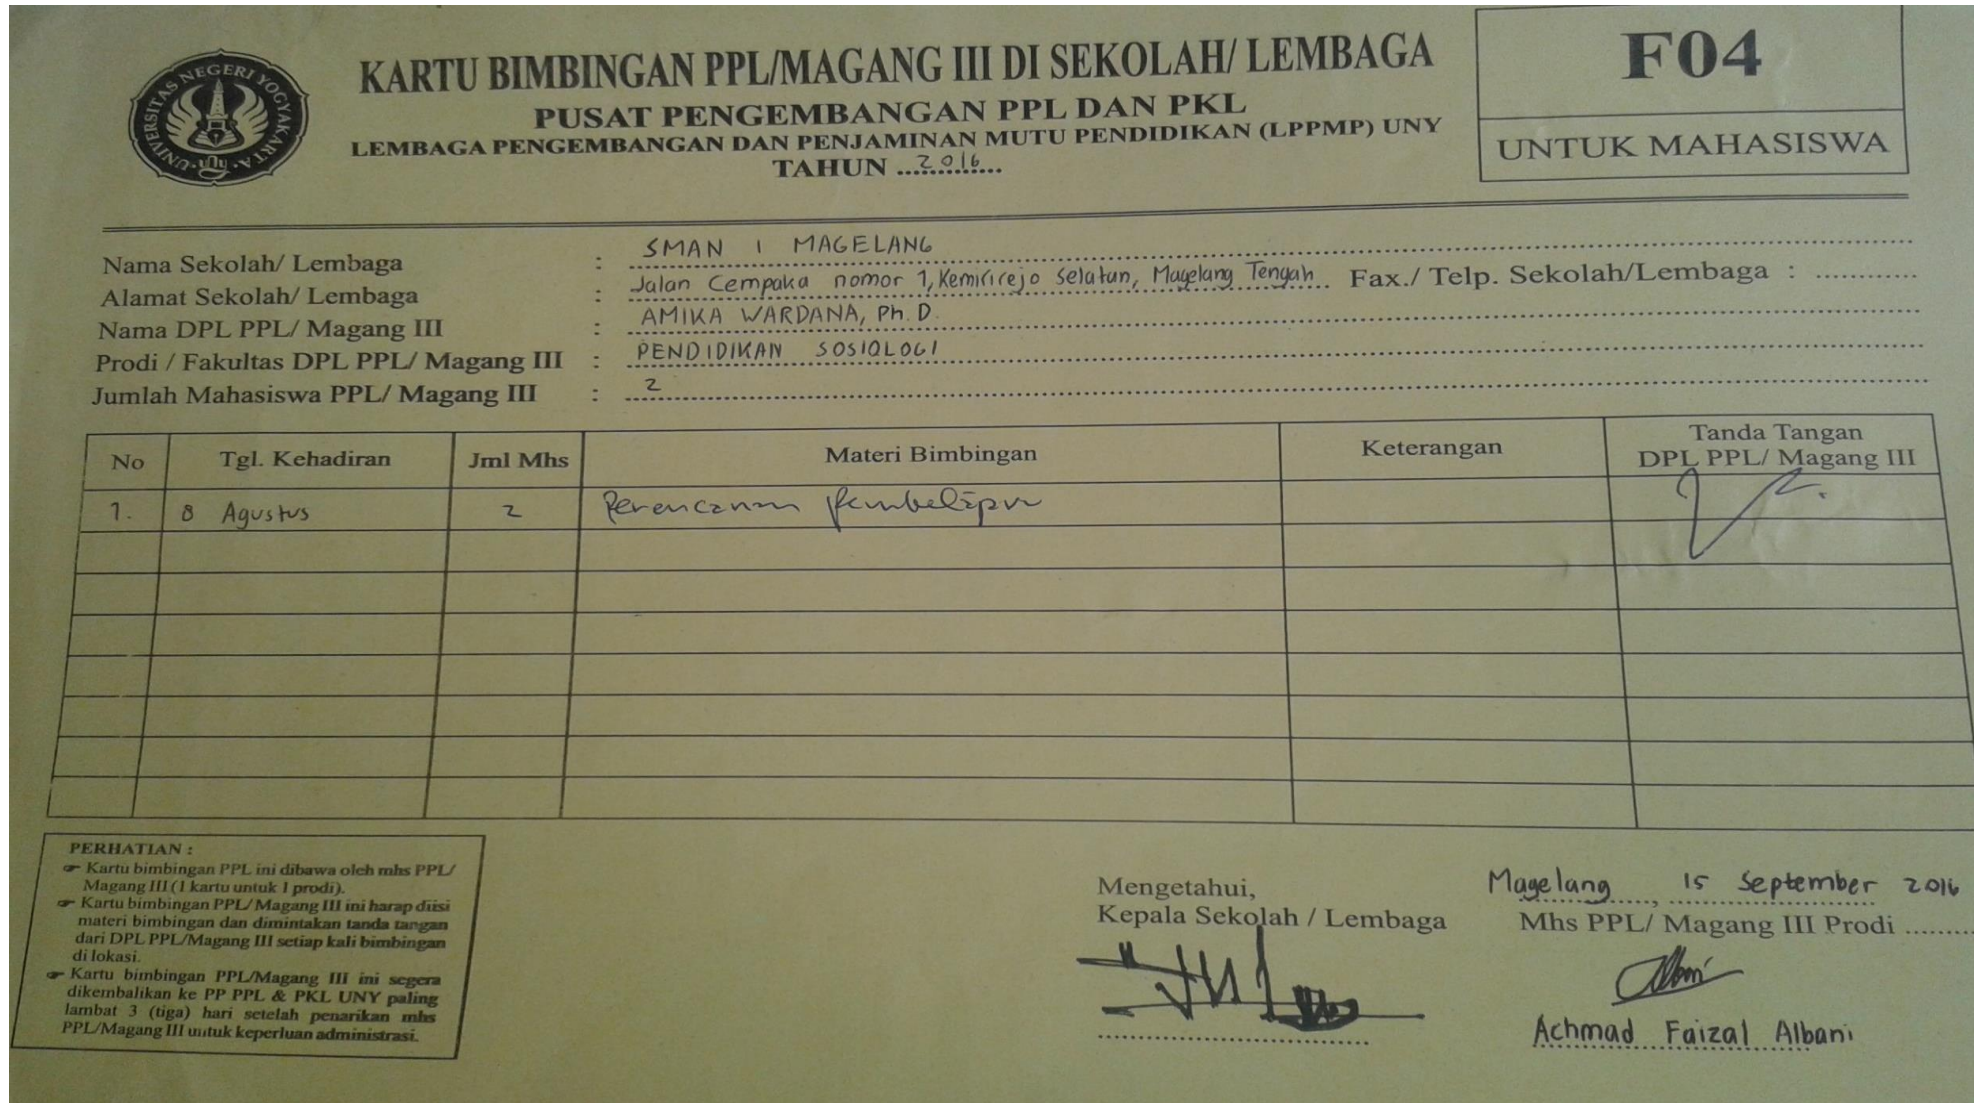 UNIVERSITAS NEGERI YOGYAKARTA
KARTU BIMBINGAN PPL/MAGANG III DI SEKOLAH/ LEMBAGA
PUSAT PENGEMBANGAN PPL DAN PKL
LEMBAGA PENGEMBANGAN DAN PENJAMINAN MUTU PENDIDIKAN (LPPMP) UNY
TAHUN 2016
F04
UNTUK MAHASISWA
Nama Sekolah/ Lembaga : SMAN 1 MAGELANG
Alamat Sekolah/ Lembaga : Jalan Cempaka nomor 1, Kemirirejo Selatan, Magelang Tengah Fax./ Telp. Sekolah/Lembaga : ............
Nama DPL PPL/ Magang III : AMIKA WARDANA, Ph.D.
Prodi / Fakultas DPL PPL/ Magang III : PENDIDIKAN SOSIOLOGI
Jumlah Mahasiswa PPL/ Magang III : 2
No Tgl. Kehadiran Jml Mhs Materi Bimbingan Keterangan Tanda Tangan DPL PPL/ Magang III
1. 8 Agustus 2
PERHATIAN :
☞ Kartu bimbingan PPL ini dibawa oleh mhs PPL/
Magang III (1 kartu untuk 1 prodi).
☞ Kartu bimbingan PPL/ Magang III ini harap diisi
materi bimbingan dan dimintakan tanda tangan
dari DPL PPL/Magang III setiap kali bimbingan
di lokasi.
☞ Kartu bimbingan PPL/Magang III ini segera
dikembalikan ke PP PPL & PKL UNY paling
lambat 3 (tiga) hari setelah penarikan mhs
PPL/Magang III untuk keperluan administrasi.
Mengetahui,
Kepala Sekolah / Lembaga
Magelang, 15 September 2016
Mhs PPL/ Magang III Prodi .........
Achmad Faizal Albani